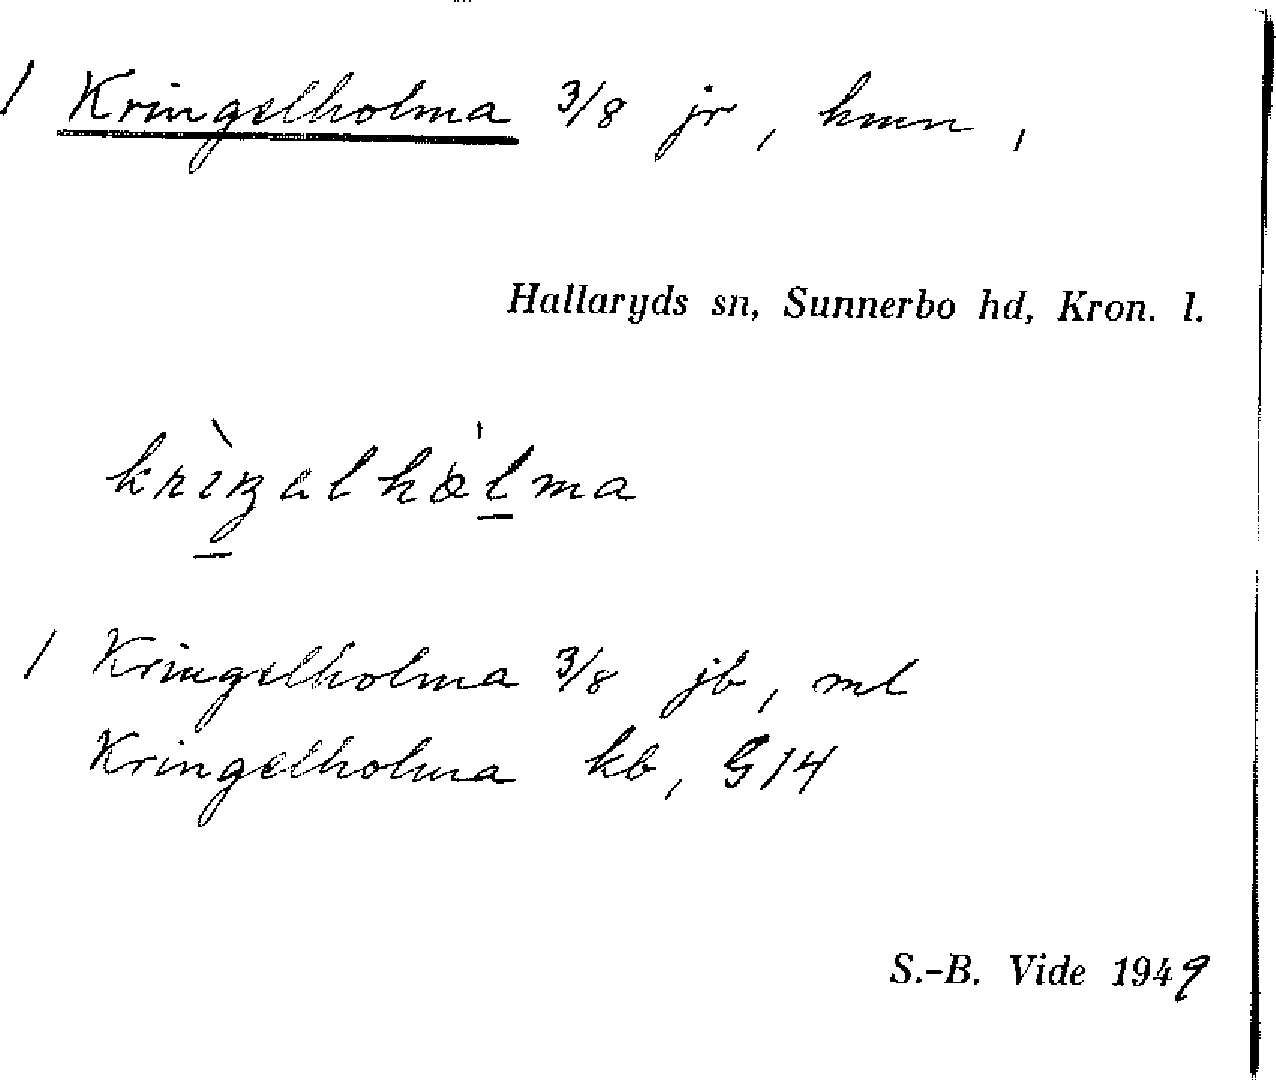 1 Kringelholma 3/8 jr, hmn,
Hallaryds sn, Sunnerbo hd, Kron. l.
krìŋalhȯ́lma
1 Kringelholma 3/8 jb, ml
Kringelholma kb, G14
S.-B. Vide 1949